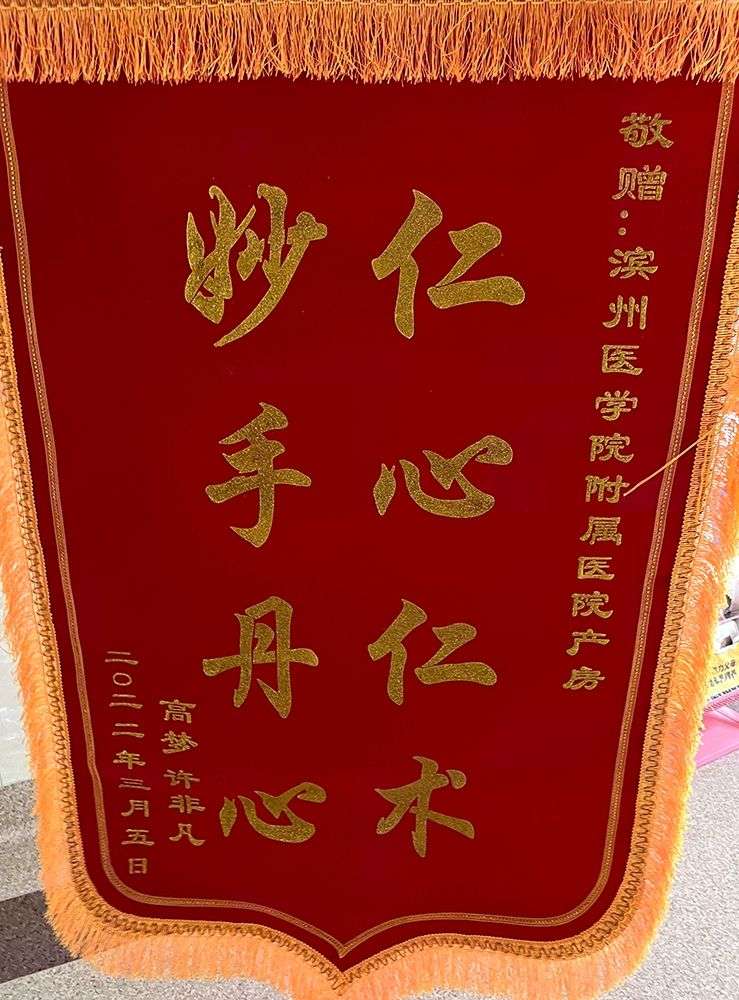 敬赠:滨州医学院附属医院产房
仁心仁术
妙手丹心
高梦 许非凡
二〇二二年三月五日